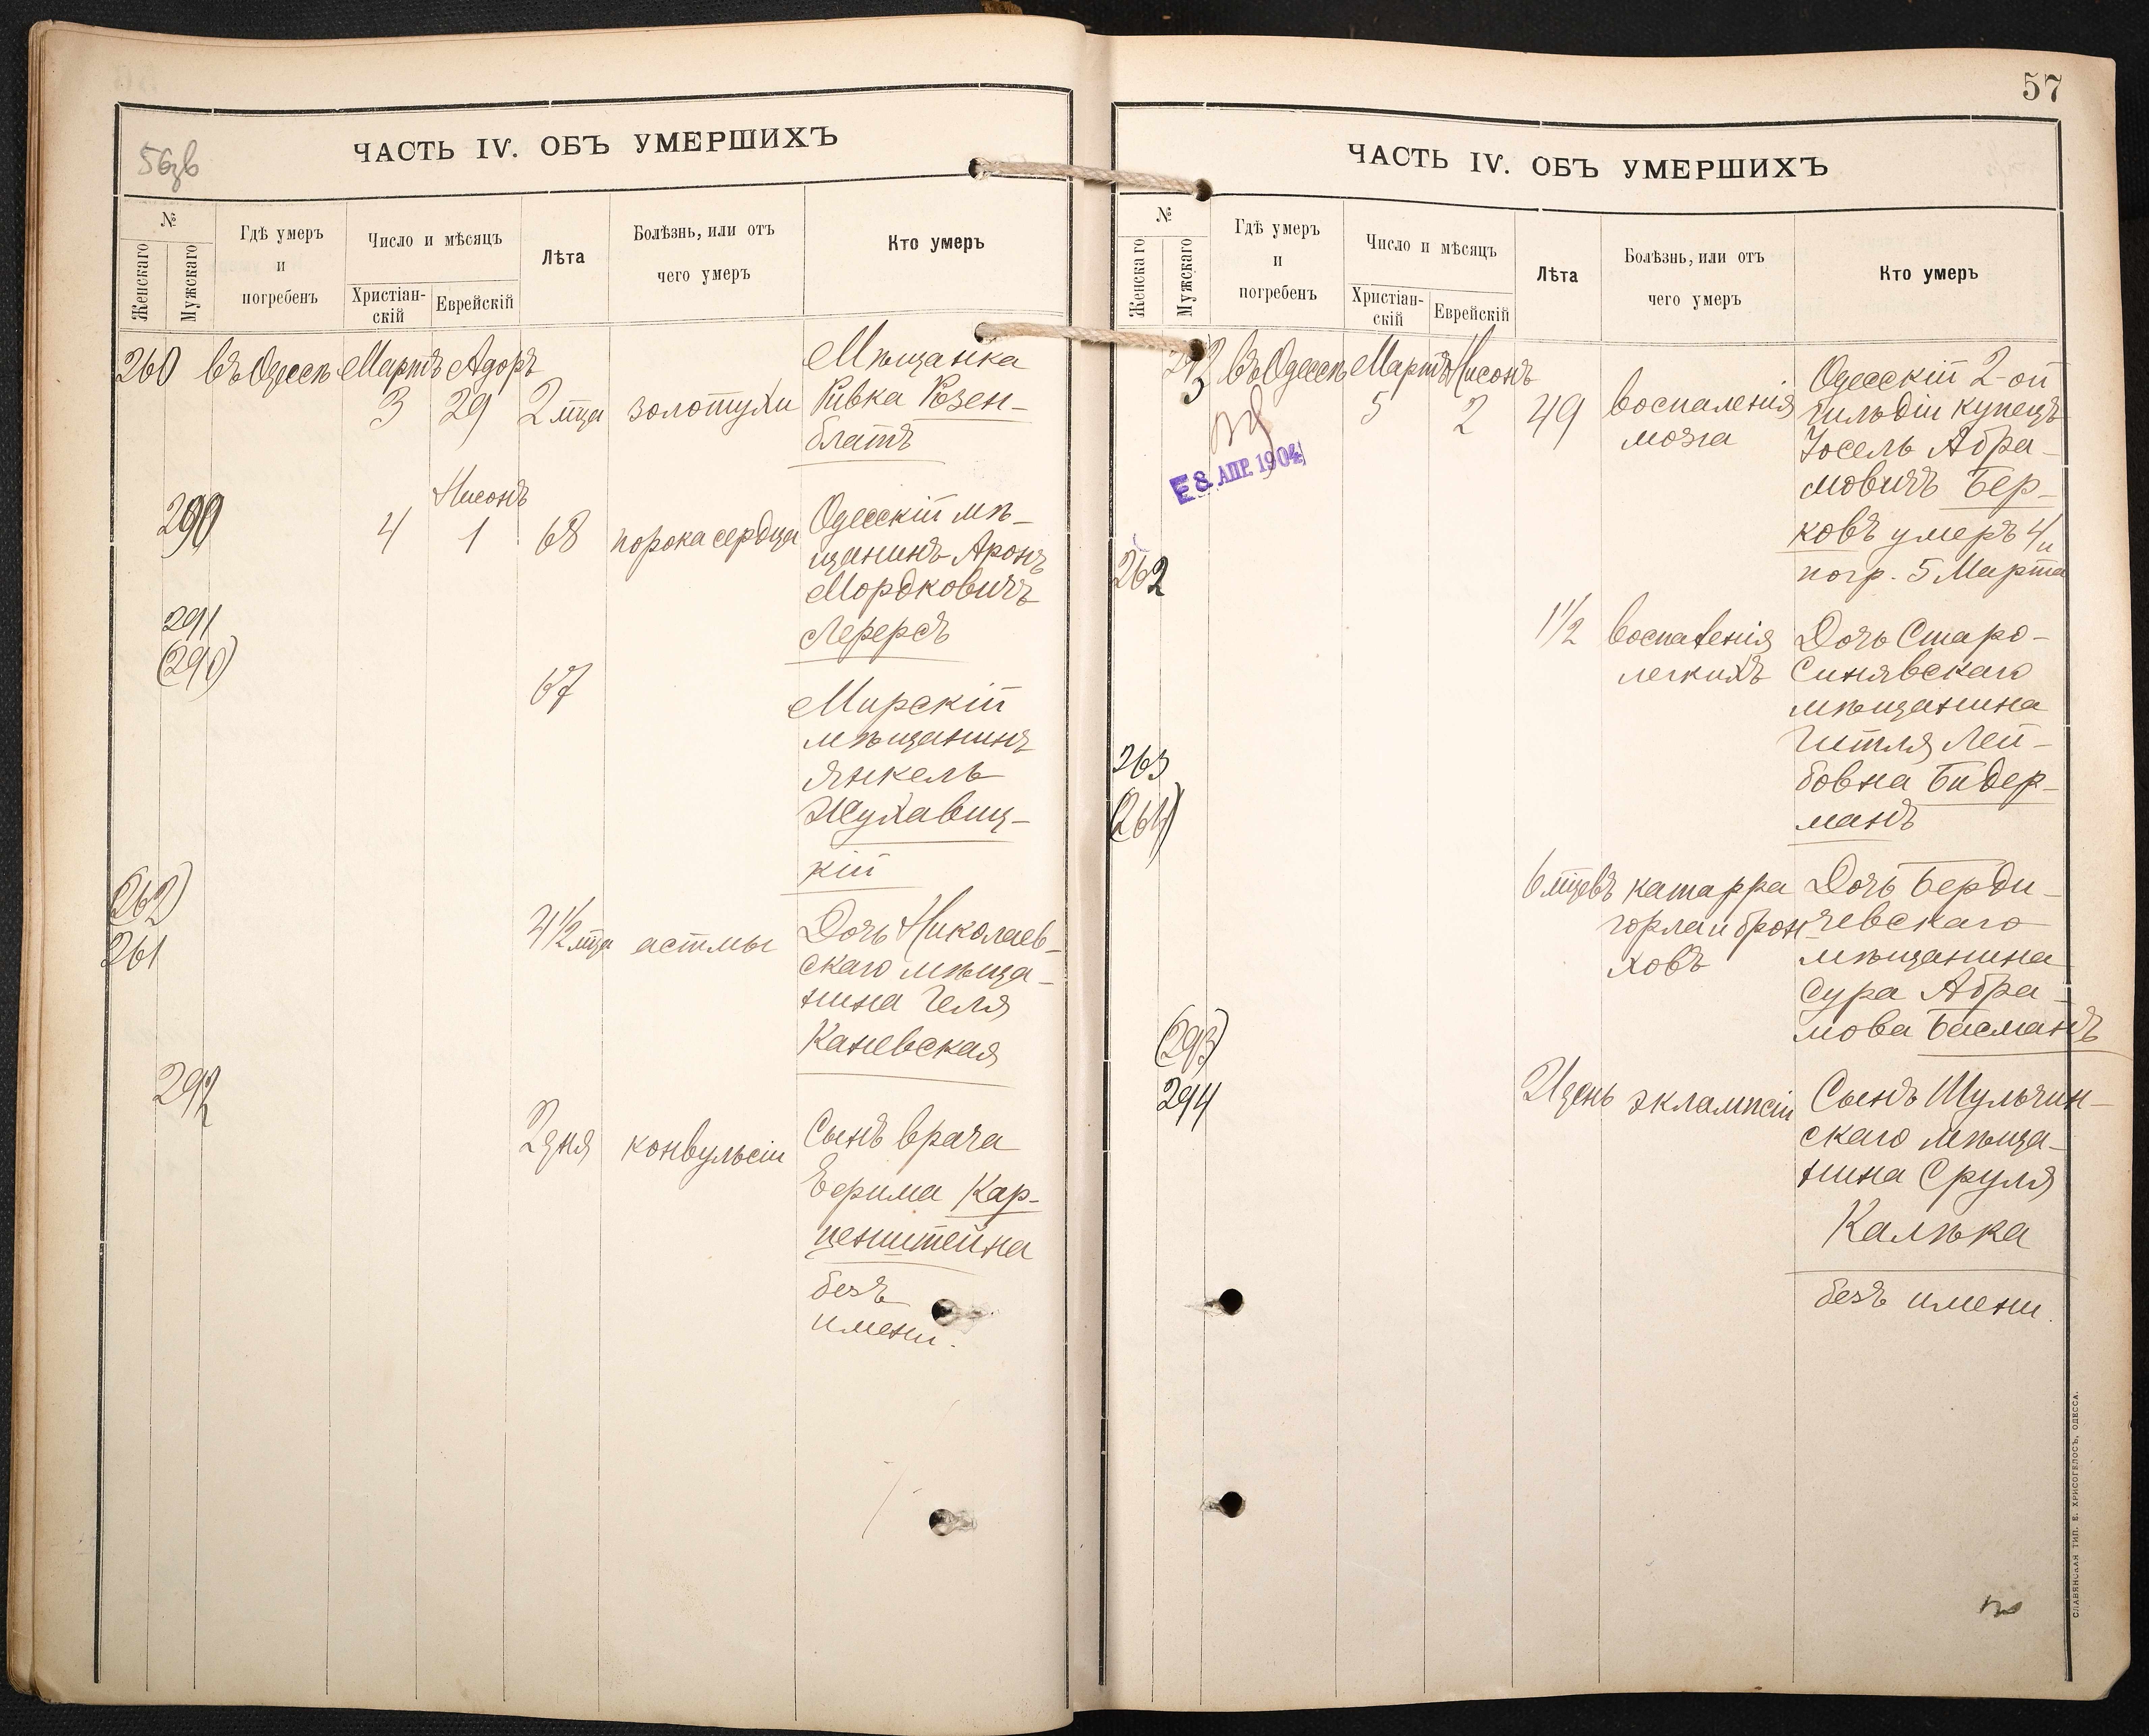 56зв
ЧАСТЬ IV. ОБЪ УМЕРШИХЪ
№
Женскаго
Мужскаго
Гдѣ умеръ
и
погребенъ
Число и мѣсяцъ
Христіан-
скій
Еврейскій
Лѣта
Болѣзнь, или отъ
чего умеръ
Кто умеръ
260 въ Одессѣ Мартъ Адоръ Мѣщанка
3 29 2 мца золотухи Ривка Розен-
блатъ
Нисонъ
290 4 1 68 порока сердца Одесскій мѣ-
щанинъ Аронъ
Мордковичъ
Лерерсъ
291
(290)
67 Мирскій
мѣщанинъ
Янкель
Жухавиц-
кій
(262)
261
4½ мца астмы Дочь Николаев-
скаго мѣща-
нина Геля
Каневская
292
2 дня конвульсіи Сынъ врача
Ефрима Кар-
ценштейна
безъ
имени.
57
ЧАСТЬ IV. ОБЪ УМЕРШИХЪ
№
Женскаго
Мужскаго
Гдѣ умеръ
и
погребенъ
Число и мѣсяцъ
Христіан-
скій
Еврейскій
Лѣта
Болѣзнь, или отъ
чего умеръ
Кто умеръ
293 въ Одессѣ Мартъ Нисонъ Одесскій 2-ой
5 2 49 воспаленія гильдіи купецъ
мозга Іосель Абра-
мовичъ Бер-
ковъ умеръ 4 и
погр. 5 Марта
8 АПР. 1904
262
1½ воспаленія Дочь Старо-
легкихъ Синявскаго
мѣщанина
Гитля Лей-
бовна Бидер-
манъ
263
(264)
6 мцевъ катарра Дочь Берди-
горла и брон- чевскаго
ховъ мѣщанина
Сура Абра-
мова Басманъ
(293)
294
21 день эклампсіи Сынъ Шульчин-
скаго мѣща-
нина Сруля
Калѣка
безъ имени.
СЛАВЯНСКАЯ ТИП. Е. ХРИСОГЕЛОСЪ, ОДЕССА.